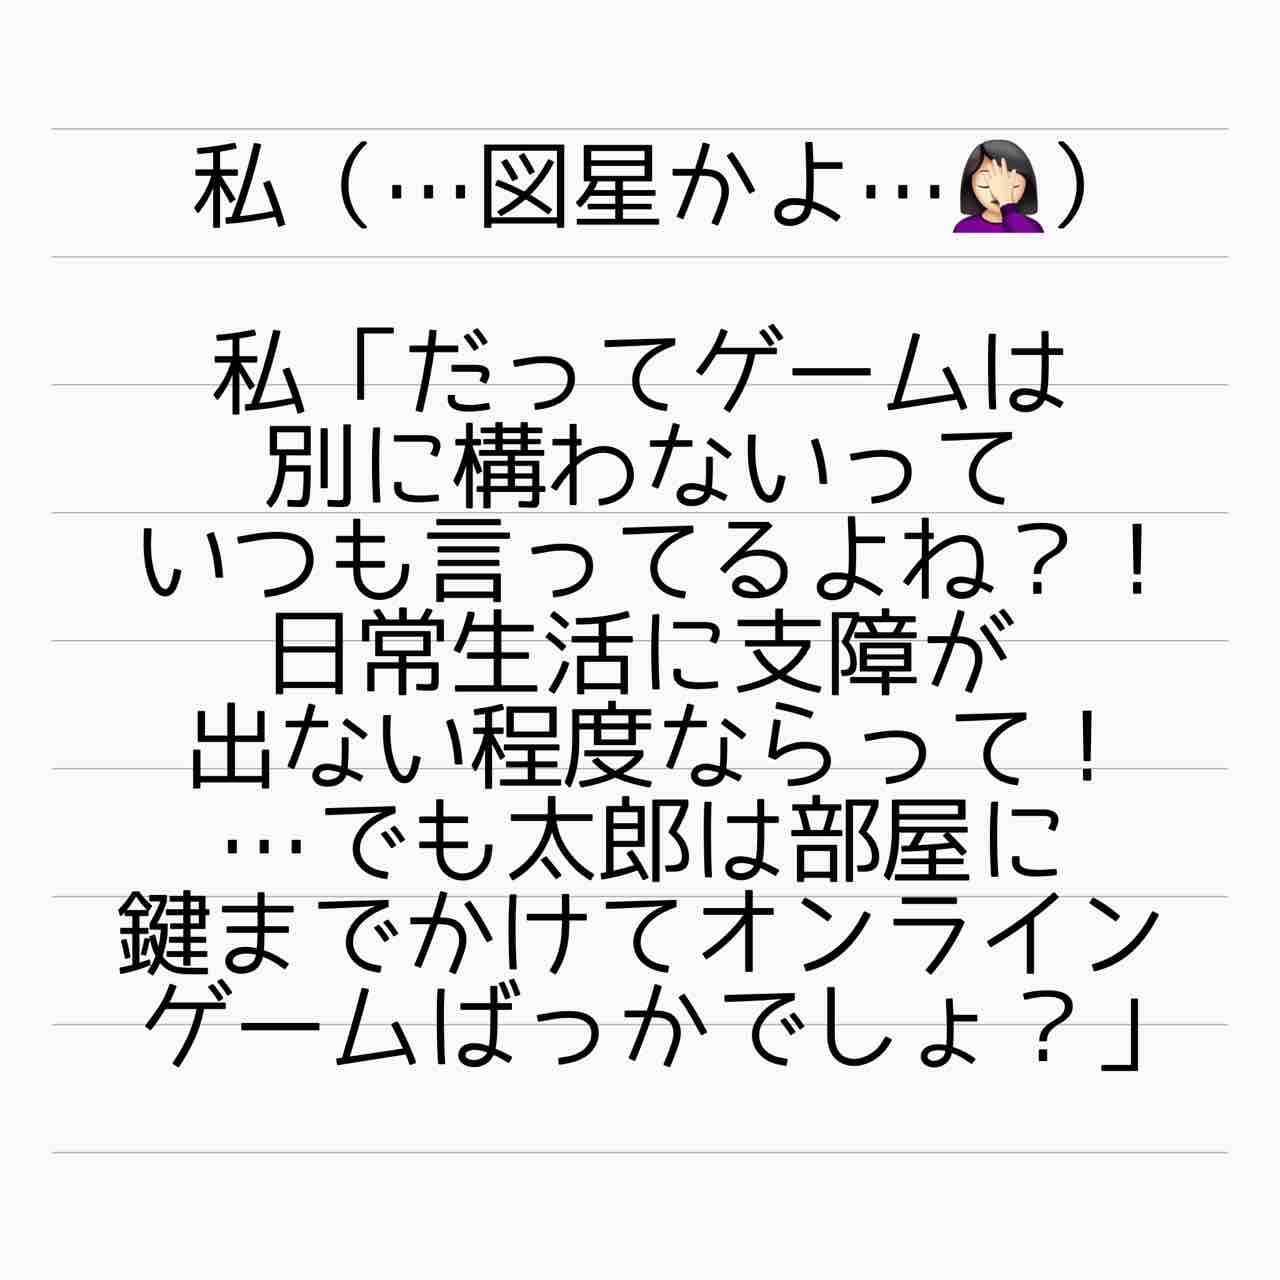 私（…図星かよ…🤦🏻‍♀️）
私「だってゲームは
別に構わないって
いつも言ってるよね？！
日常生活に支障が
出ない程度ならって！
…でも太郎は部屋に
鍵までかけてオンライン
ゲームばっかでしょ？」